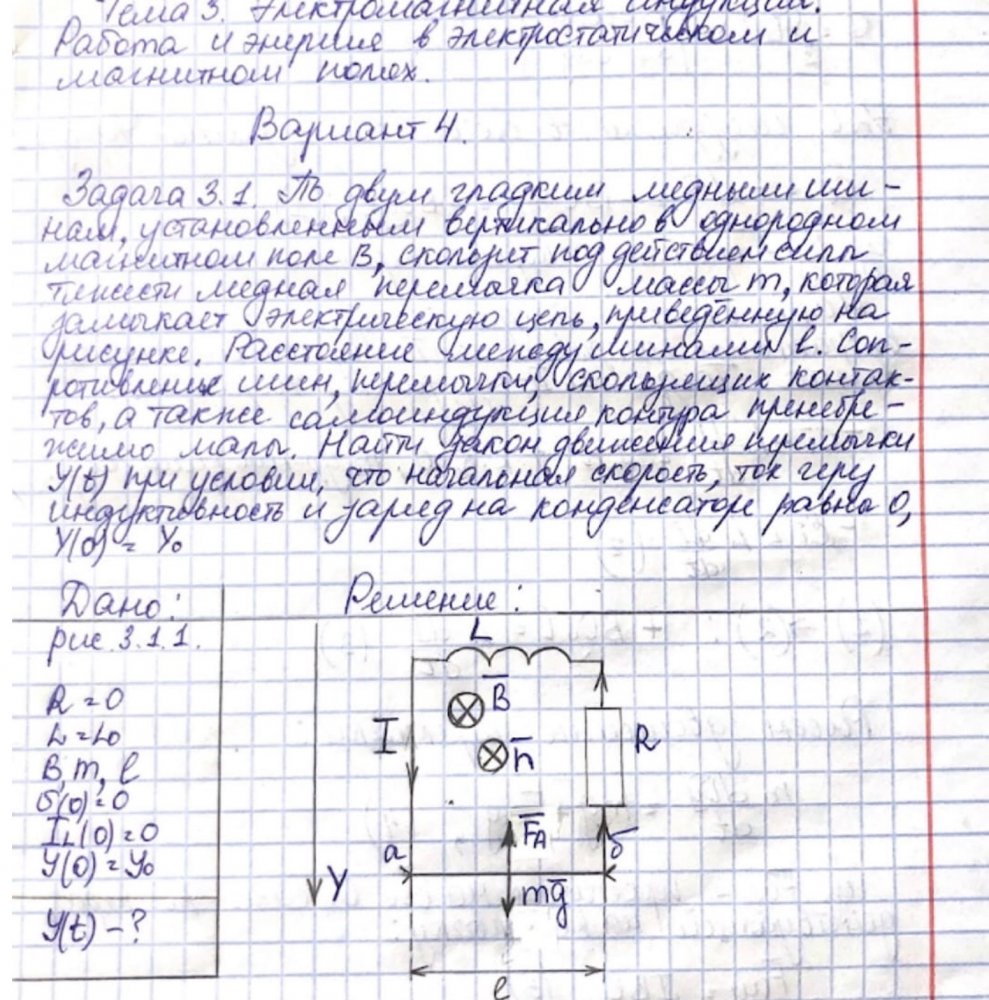 Тема 3. Электромагнитная индукция.
Работа и энергия в электростатическом и
магнитном полях.
Вариант 4.
Задача 3.1. По двум гладким медным ши-
нам, установленным вертикально в однородном
магнитном поле В, скользит под действием силы
тяжести медная перемычка массы m, которая
замыкает электрическую цепь, приведённую на
рисунке. Расстояние между шинами l. Соп-
ротивление шин, перемычки, скользящих контак-
тов, а также самоиндукция контура пренебре-
жимо малы. Найти закон движения перемычки
Y(t) при условии, что начальная скорость, ток через
индуктивность и заряд на конденсаторе равны 0,
Y(0) = Y₀
Дано:
Решение:
рис. 3.1.1.
R = 0
L = L₀
B, m, l
U(0) = 0
I_L(0) = 0
Y(0) = Y₀
Y(t) - ?
L
B
I
n
R
F_A
а
б
Y
mg
l